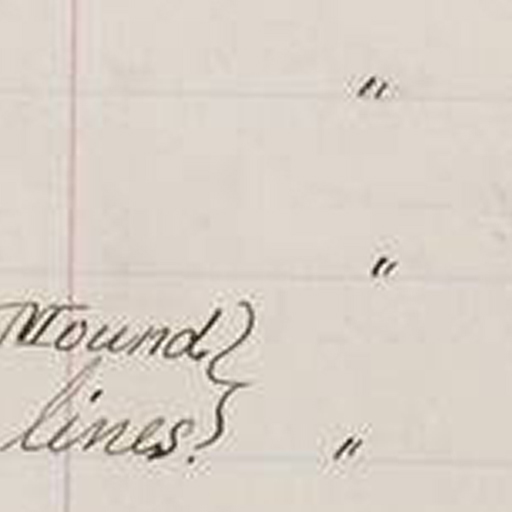 "
"
Mound }
lines. } "